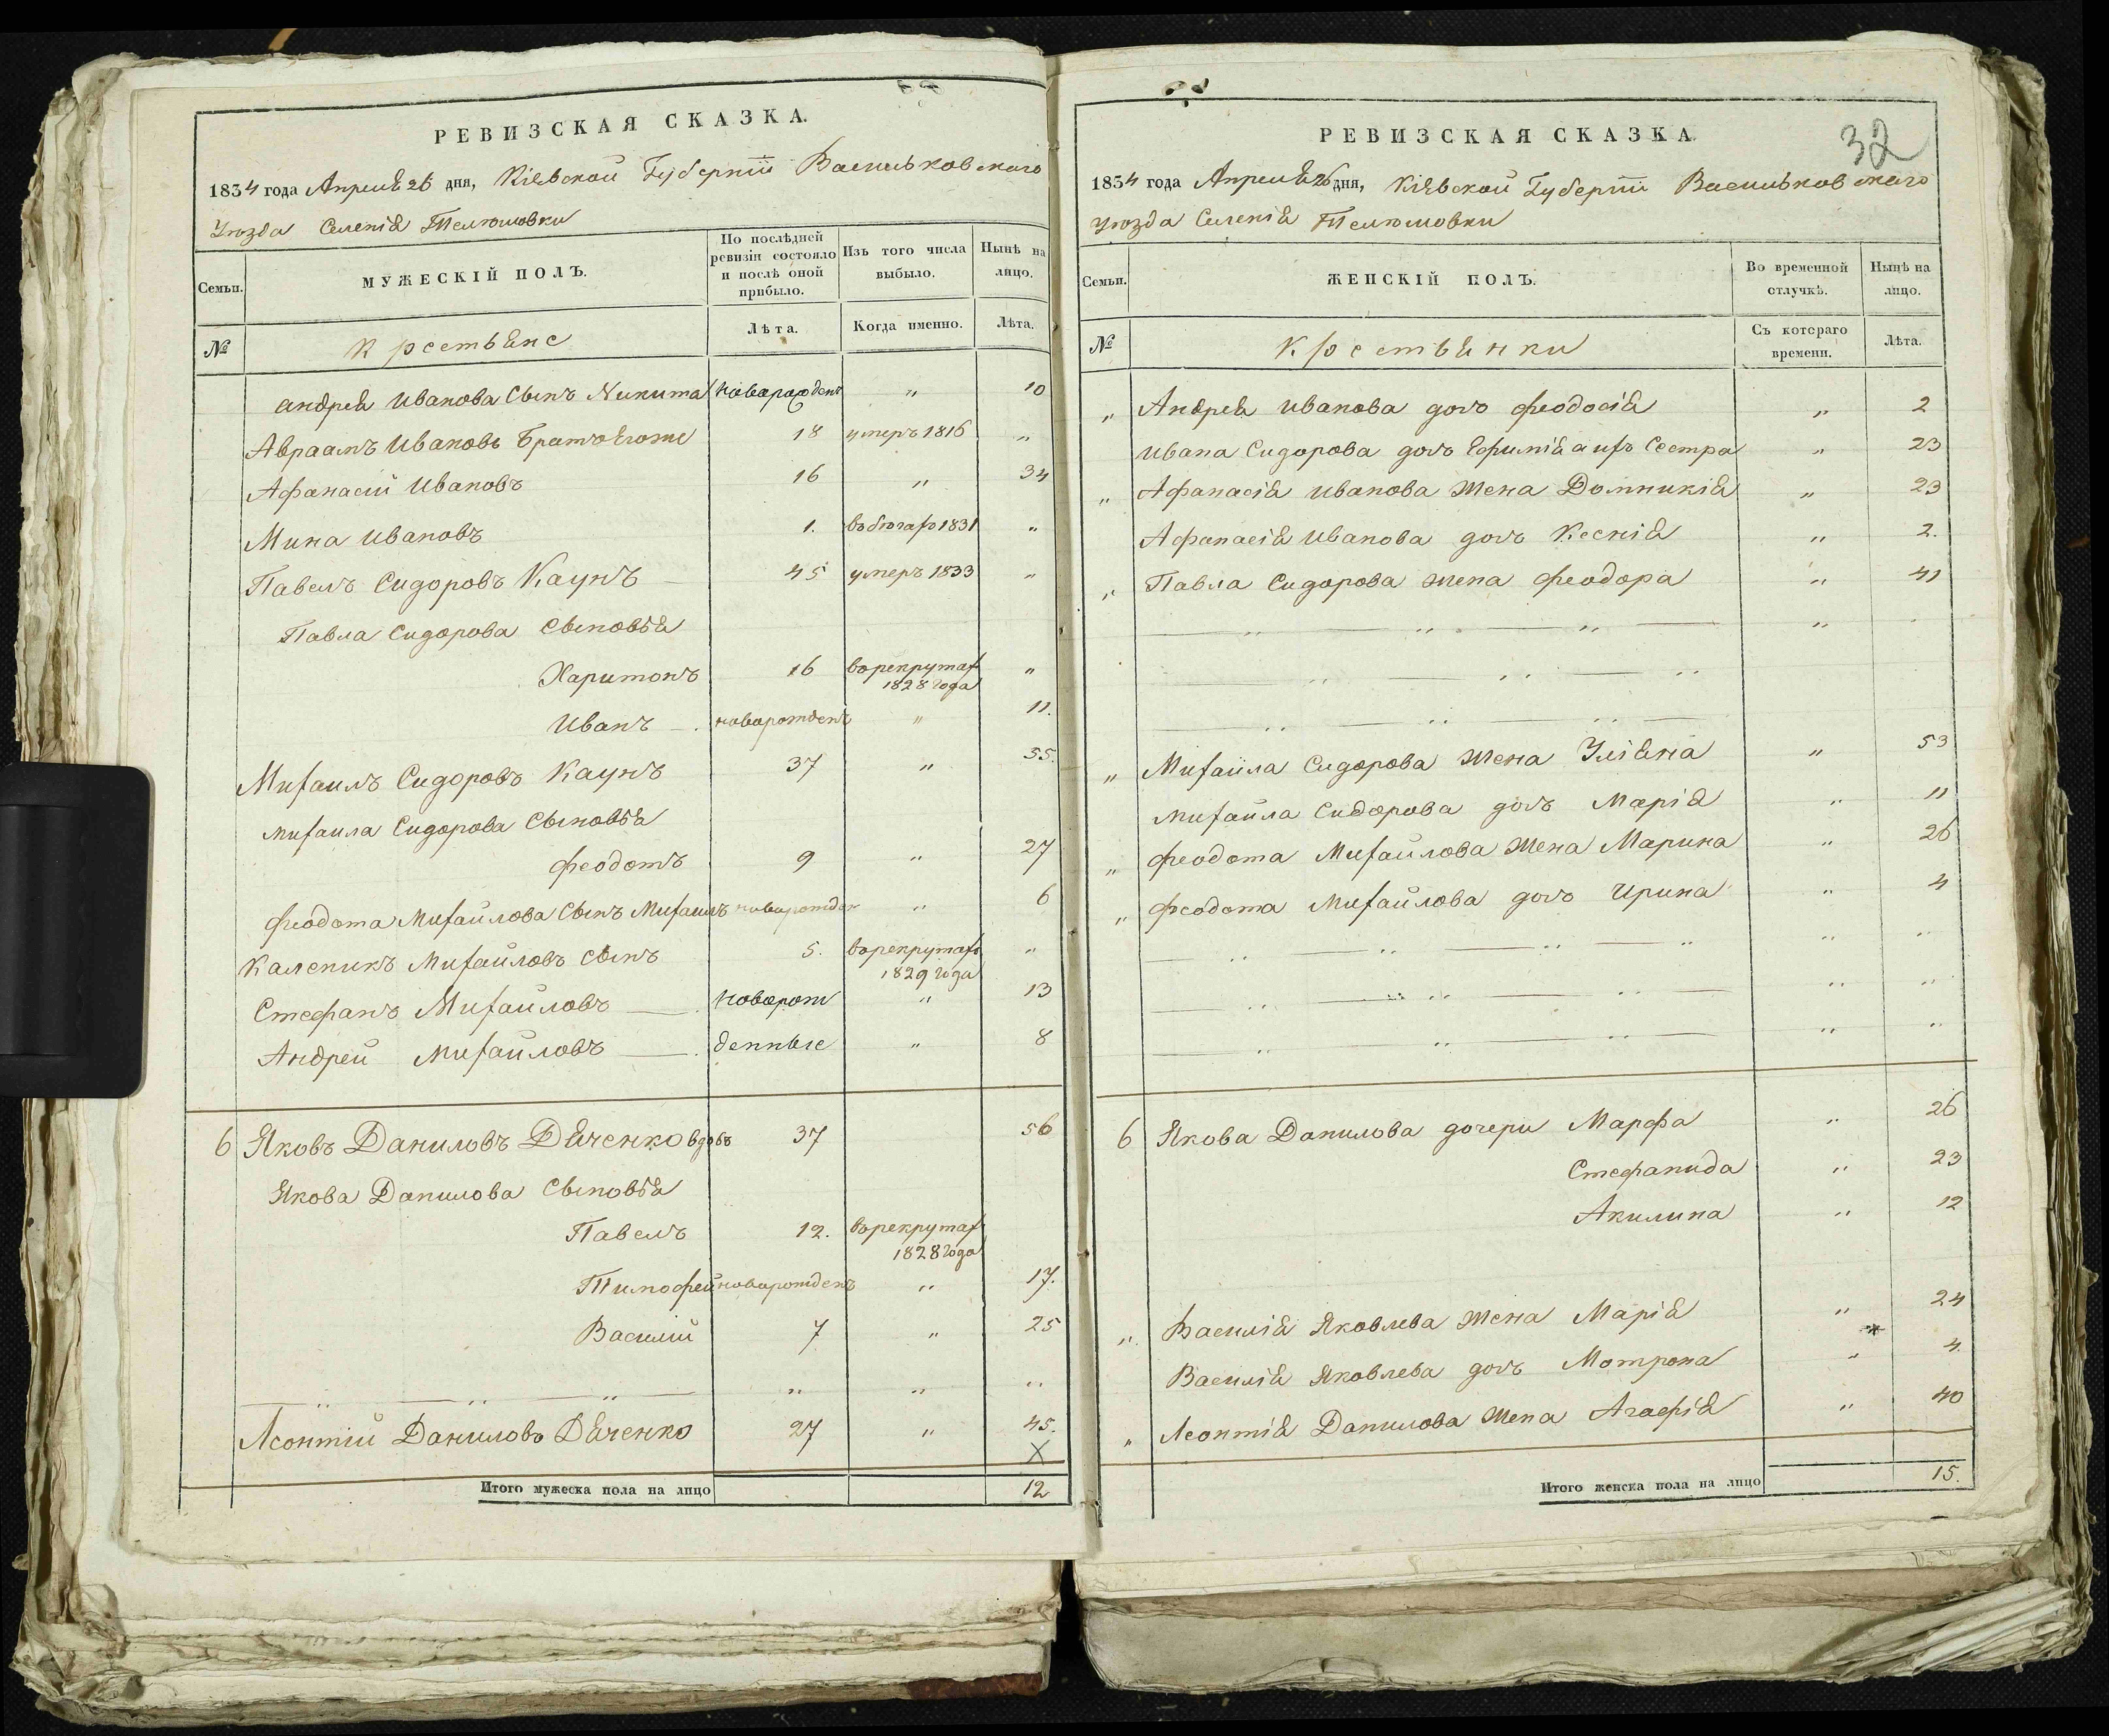 РЕВИЗСКАЯ СКАЗКА.
1834 года Апреля 26 дня, Кіевской Губерніи Васильковскаго
Уюзда Селенія Телюшовки
Семьи. МУЖЕСКІЙ ПОЛЪ. По послѣдней ревизіи состояло и послѣ оной прибыло. Изъ того числа выбыло. Нынѣ на лицо.
№ Крестьяне Лѣта. Когда именно. Лѣта.
Андрея Иванова Сынъ Никита новорожденъ " 10
Авраамъ Ивановъ Братъ Егоже 18 умеръ 1816 "
Афанасій Ивановъ 16 " 34
Мина Ивановъ 1. въ бюгахъ 1831 "
Павелъ Сидоровъ Каунъ 45 умеръ 1833 "
Павла Сидорова Сыновья
Харитонъ 16 въ рекрутах "
1828 года
Иванъ новорожденъ " 11.
Михаилъ Сидоровъ Каунъ 37 " 55.
Михаила Сидорова Сыновья
Феодотъ 9 " 27
Феодота Михайлова Сынъ Михаилъ новорожден " 6
Каленикъ Михайловъ Сынъ 5. въ рекрутахъ "
1829 года
Стефанъ Михайловъ новорож " 13
Андрей Михайловъ денные " 8
6 Яковъ Даниловъ Дяченко вдовъ 37 56
Якова Данилова Сыновья
Павелъ 12. въ рекрутах
1828 года
Тимофей новорожденъ " 17.
Василій 7 " 25
" " " " "
Леонтій Даниловъ Дяченко 27 " 45.
X
Итого мужеска пола на лицо 12
32
РЕВИЗСКАЯ СКАЗКА.
1834 года Апреля 26 дня, Кіевской Губерніи Васильковскаго
Уюзда Селенія Телюшовки
Семьи. ЖЕНСКІЙ ПОЛЪ. Во временной отлучкѣ. Нынѣ на лицо.
№ Крестьянки Съ котораго времени. Лѣта.
" Андрея Иванова дочь Феодосія " 2
Ивана Сидорова дочь Ефимія а ихъ Сестра " 23
" Афанасія Иванова Жена Домникія " 23
Афанасія Иванова дочь Ксенія " 2.
" Павла Сидорова Жена Феодора " 41
" " " "
" " "
" " "
" Михайла Сидорова Жена Уліяна " 53
Михайла Сидорова дочь Марія " 11
" Феодота Михайлова Жена Марина " 26
" Феодота Михайлова дочь Ирина " 4
" " " " "
" " " " "
" " " " "
6 Якова Данилова дочери Марфа " 26
Стефанида " 23
Акилина " 12
" Василія Яковлева Жена Марія " 24
Василія Яковлева дочь Мотрона " 4.
" Леонтія Данилова Жена Агафія " 40
Итого женска пола на лицо 15.